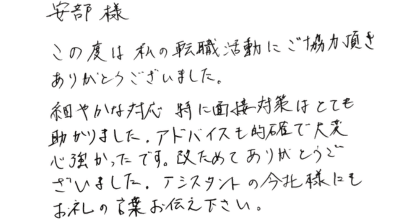 安部 様
この度は私の転職活動にご協力頂き
ありがとうございました。
細やかな対応 特に面接対策はとても
助かりました。アドバイスも的確で大変
心強かったです。改ためてありがとうご
ざいました。アシスタントの今北様にも
お礼の言葉お伝え下さい。